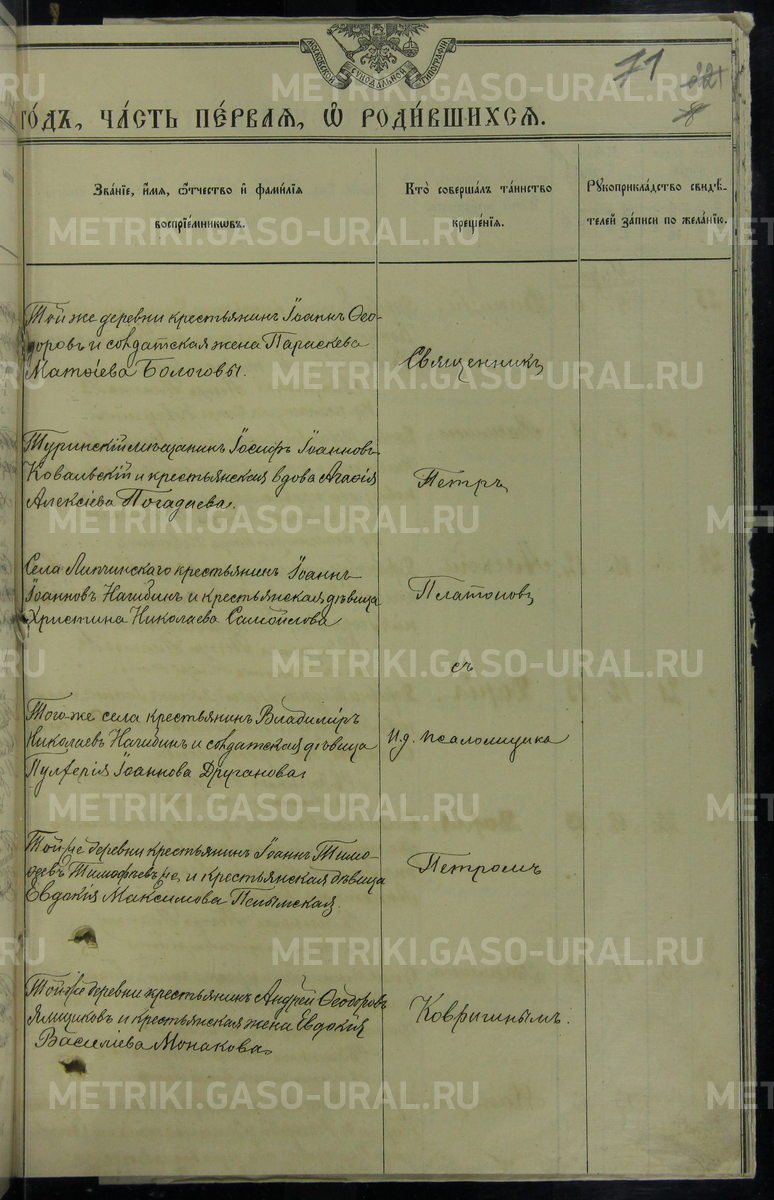 МОСКОВСКОЙ СѴНОДАЛЬНОЙ ТИПОГРАФІИ
71
го́дъ, ча́сть пе́рвая, ѡ҆ роди́вшихсѧ.
Зва́нїе, и҆́мѧ, ѻ҆́тчество и҆ фами́лїѧ
воспрїе́мникѡвъ.
Кто̀ соверша́лъ та́инство
креще́нїѧ.
Рꙋкоприкла́дство свидѣ́-
телей за́писи по жела́нїю.
Той же деревни крестьянинъ Іоаннъ Ѳео-
доровъ и солдатская жена Параскева
Матѳіева Бологовы.
Священникъ
Туринскій мѣщанинъ Іосифъ Іоанновъ
Ковальскій и крестьянская вдова Агафія
Алексіева Погадаева.
Петръ
Села Липчинскаго крестьянинъ Іоаннъ
Іоанновъ Нагибинъ и крестьянская дѣвица
Христина Николаева Самойлова
Платоновъ
съ
Того-же села крестьянинъ Владиміръ
Николаевъ Нагибинъ и солдатская дѣвица
Пулхерія Іоаннова Друганова
И.д. псаломщика
Той же деревни крестьянинъ Іоаннъ Тимо-
ѳеевъ и крестьянская дѣвица
Евдокія Максимова Пелымская.
Петромъ
Той же деревни крестьянинъ Андрей Ѳеодоровъ
Ямщиковъ и крестьянская жена Евдокія
Василіева Монакова.
Ковригинымъ.
METRIKI.GASO-URAL.RU